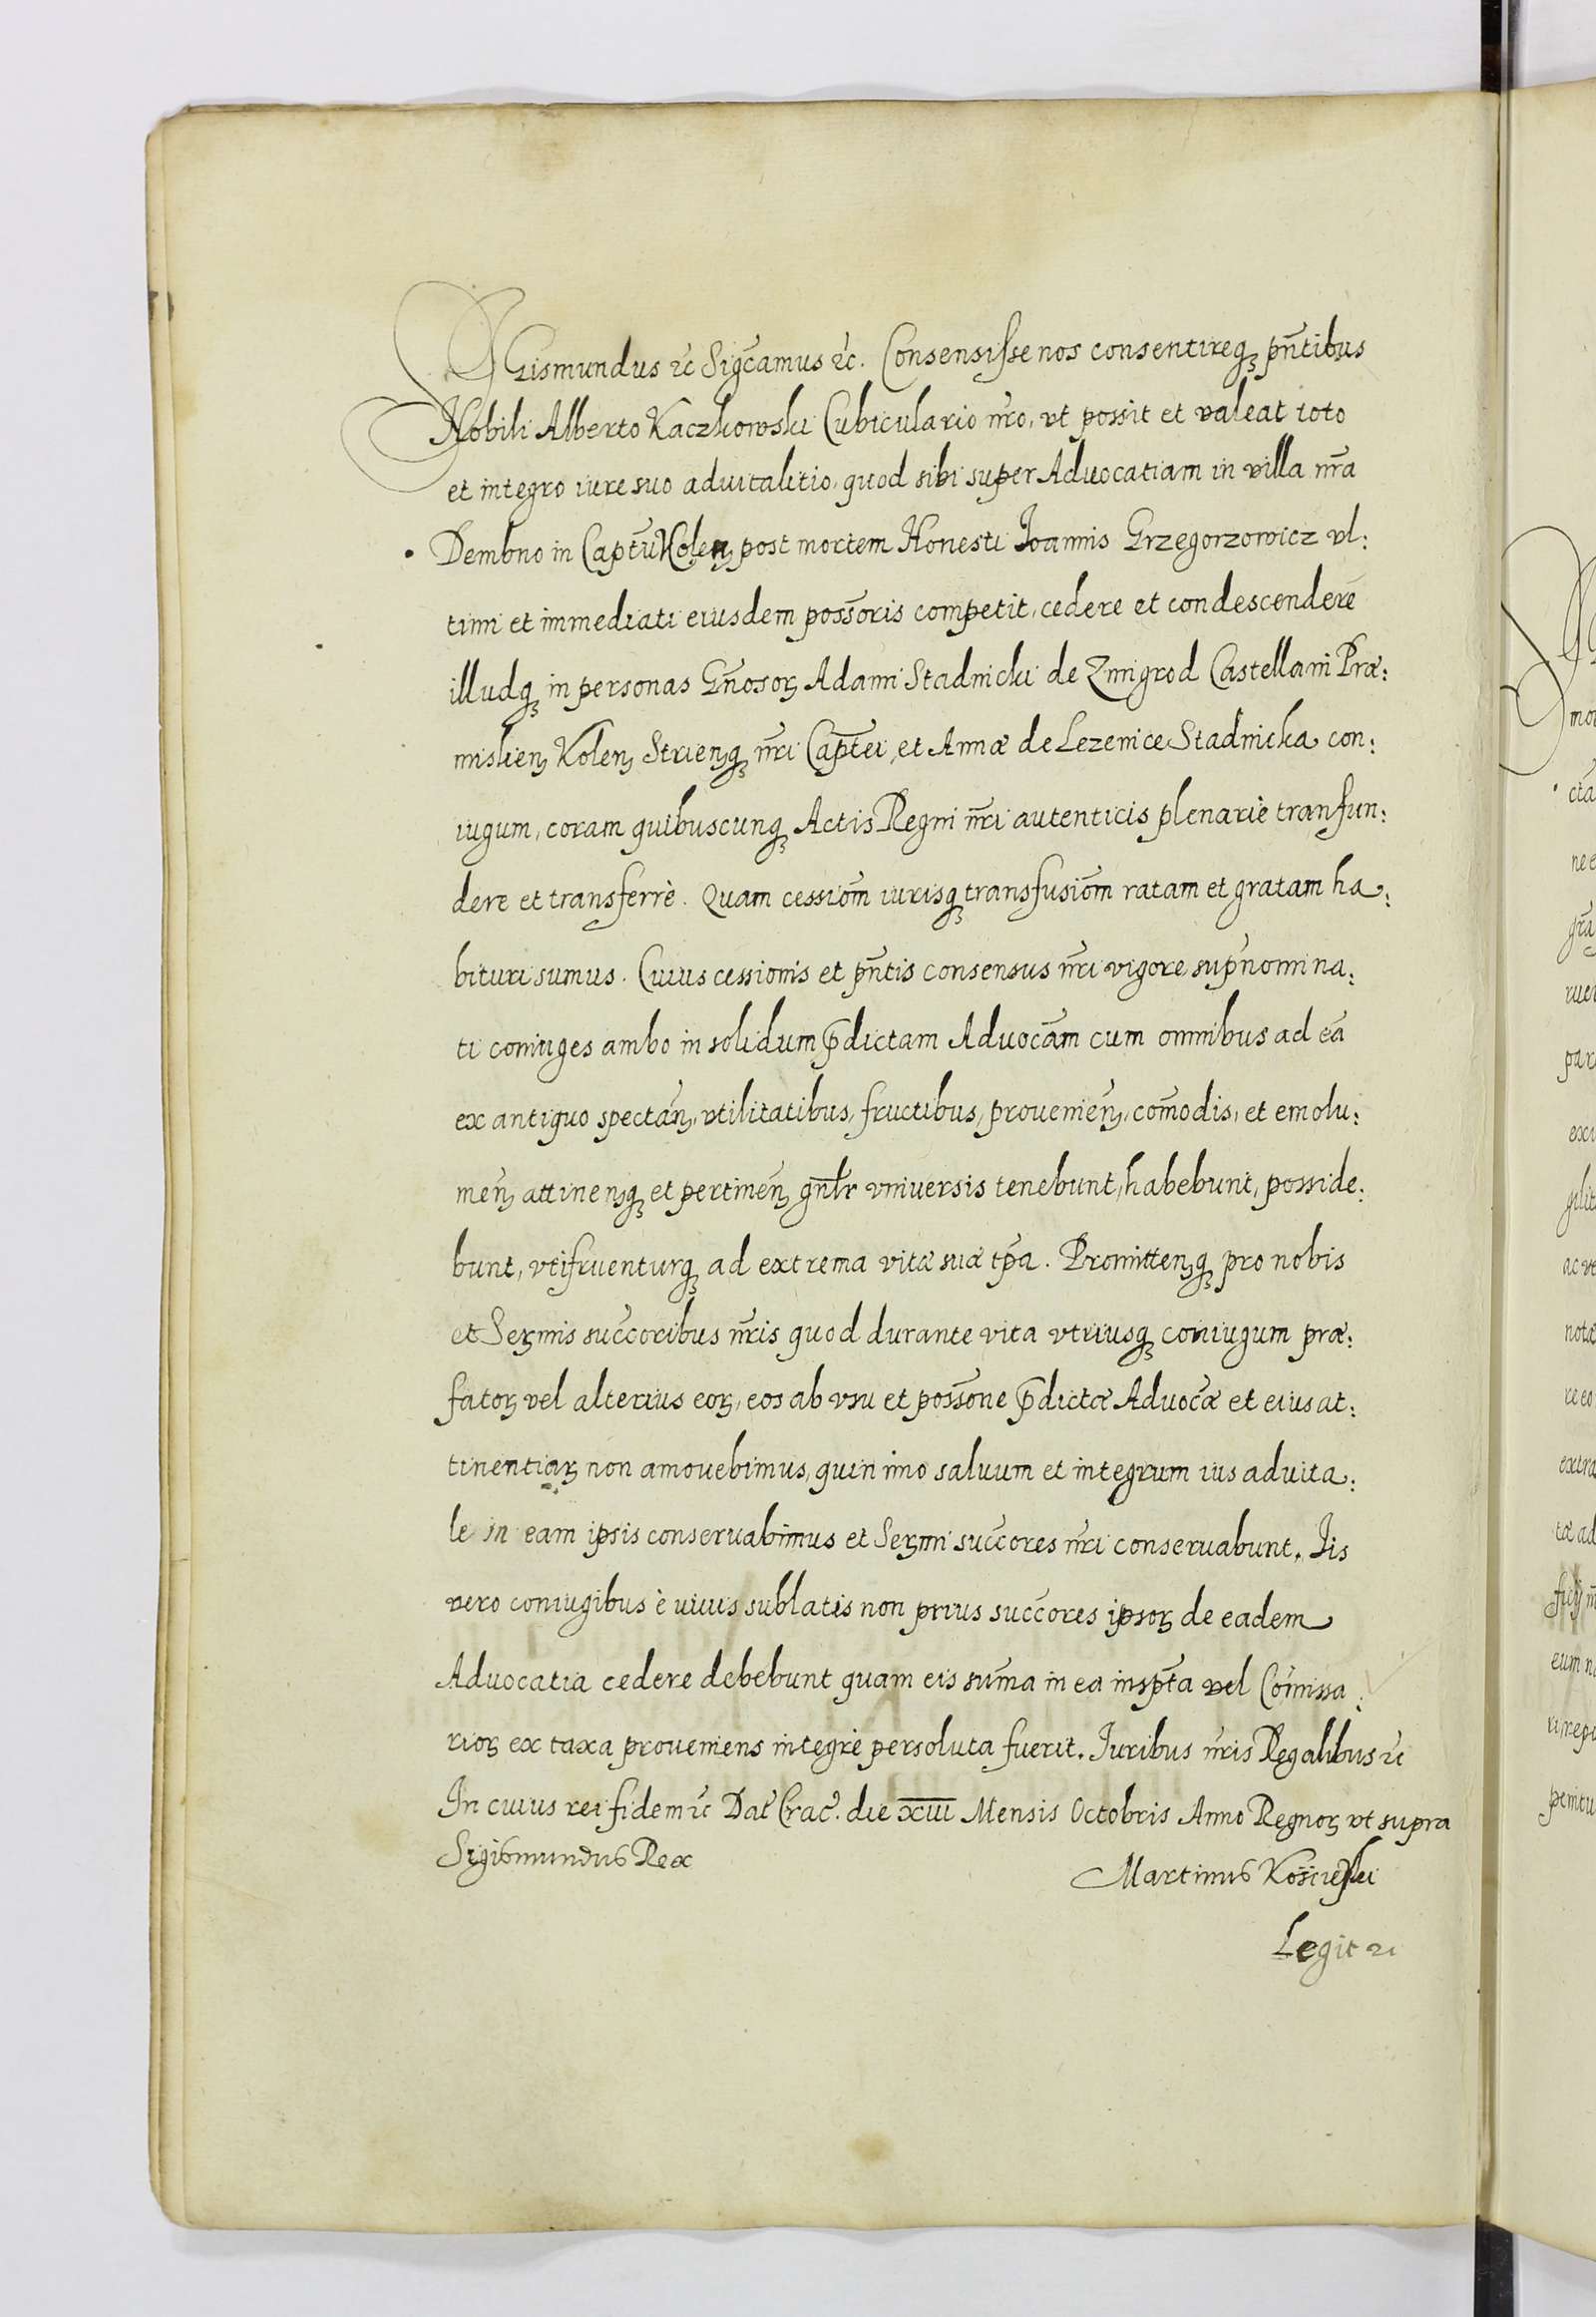 SIGismundus &c Sigcamus &c. Consensisse nos consentireq̨ pñtibus
Nobili Alberto Kaczkowski Cubiculario nr̃o, vt possit et valeat toto
et integro iure suo aduitalitio, quod sibi super Aduocatiam in villa nr̃a
Dembno in Captu Kolen̨ post mortem Honesti Joannis Grzegorzowicz vl:
timi et immediati eiusdem possõris competit, cedere et condescendere
illudq̨ in personas Gñosoꝝ Adami Stadnicki de Zmigrod Castellani Præ:
mislien̨ Kolen̨ Strien̨q̨ nr̃i Captei, et Annæ de Lezenice Stadnicka con:
iugum, coram quibuscunq̨ Actis Regni nr̃i autenticis plenariè transfun:
dere et transferrè. Quam cessiom̃ iurisq̨ transfusiom̃ ratam et gratam ha:
bituri sumus. Cuius cessionis et pñtis consensus nr̃i vigore supñomina:
ti coniuges ambo in solidum p̃dictam Aduocãm cum omnibus ad eã
ex antiquo spectãn̨, vtilitatibus, fructibus, prouenien̨, com̃odis, et emolu:
men̨ attinen̨q̨ et pertinen̨ gñlr vniuersis tenebunt, habebunt, posside:
bunt, vtifruenturq̨ ad extrema vitæ suæ tp̃a. Promitten̨q̨ pro nobis
et Serm̃is succ̃oribus nr̃is quod durante vita vtriusq̨ coniugum præ:
fatoꝝ vel alterius eoꝝ, eos ab vsu et possõne p̃dictæ Aduocæ̃ et eius at:
tinentiaꝝ non amouebimus, quin imo saluum et integrum ius aduita:
le in eam ipsis conseruabimus et Serm̃i succ̃ores nr̃i conseruabunt. Iis
vero coniugibus è viuis sublatis non prius succ̃ores ipsoꝝ de eadem
Aduocatia cedere debebunt quam eis sum̃a in ea insp̃ta vel Com̃issa:
rioꝝ ex taxa proueniens integrè persoluta fuerit. Iuribus nr̃is Regalibus &c
In cuius rei fidem &c Dat̃ Crac̃. die xiii Mensis Octobris Anno Regnoꝝ vt supra
Sigismundus Rex
Martinus Kos̈cieski
Legit &c